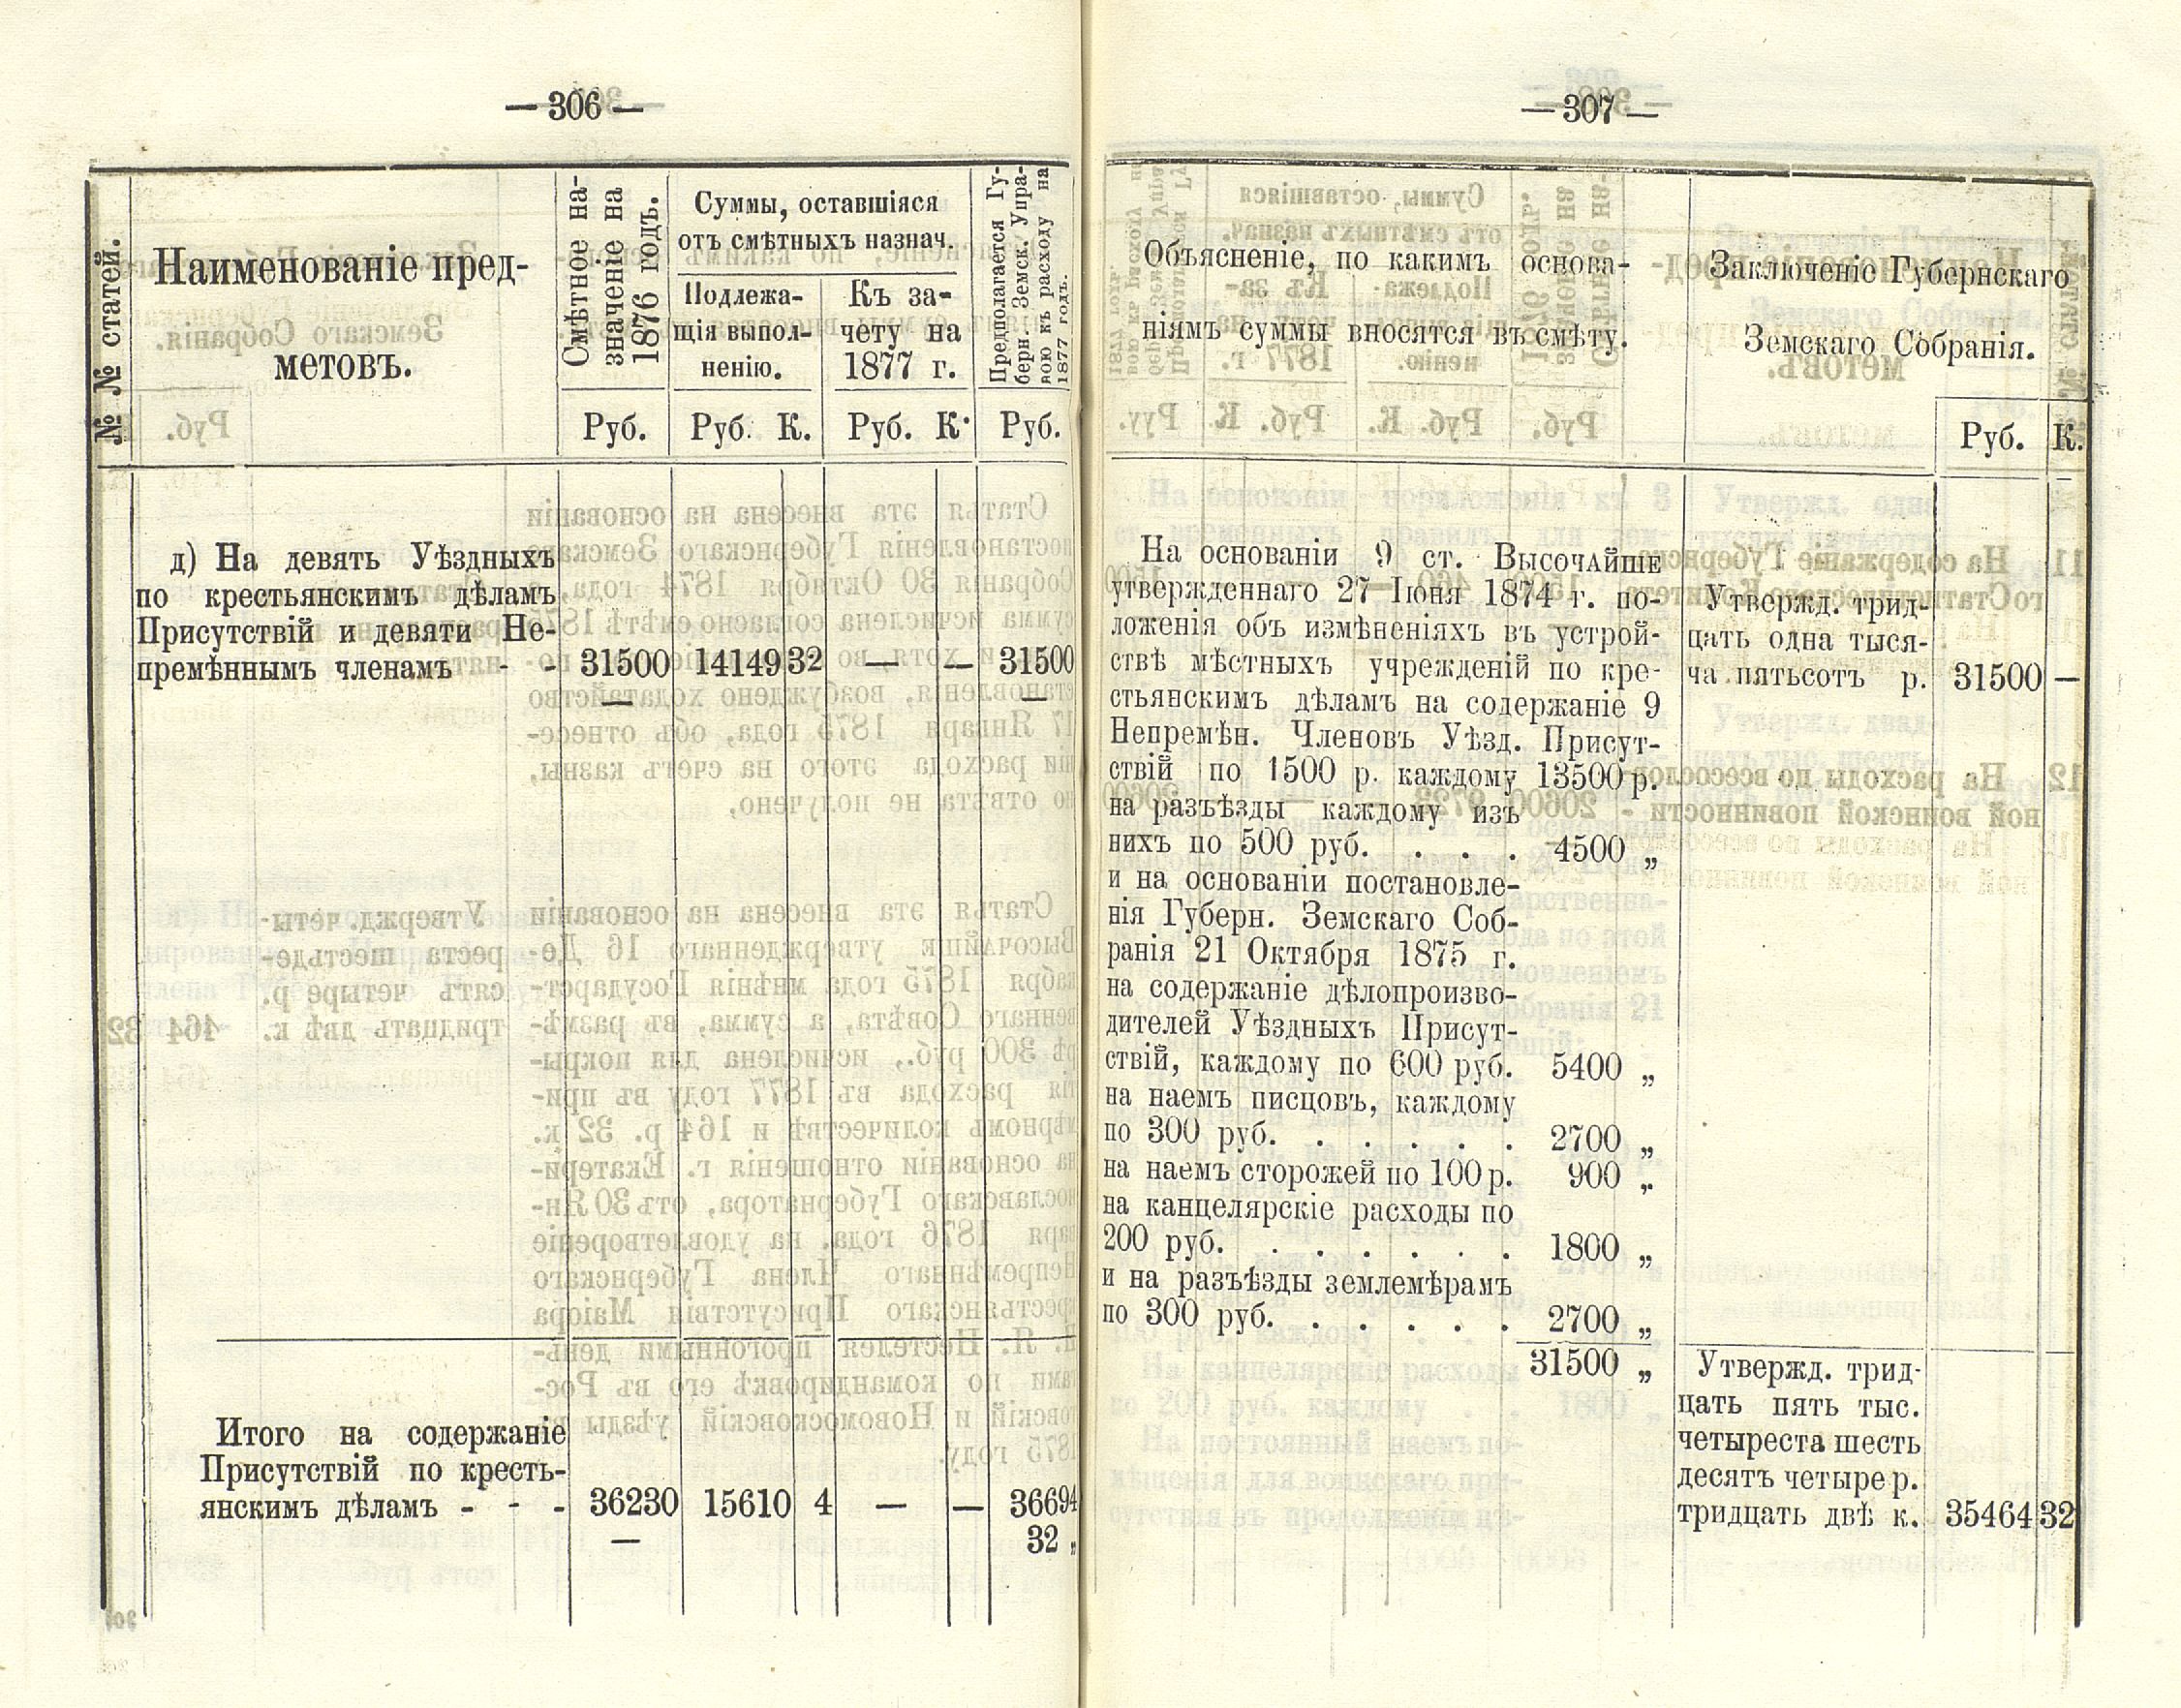 — 306 —
№ № статей.
Наименованіе пред-
метовъ.
Смѣтное на-
значеніе на
1876 годъ.
Суммы, оставшіяся
отъ смѣтныхъ назнач.
Подлежа-
щія выпол-
ненію.
Къ за-
чету на
1877 г.
Предполагается Гу-
берн. Земск. Упра-
вою къ расходу на
1877 годъ.
Руб. Руб. К. Руб. К. Руб.
д) На девять Уѣздныхъ
по крестьянскимъ дѣламъ
Присутствій и девяти Не-
премѣннымъ членамъ - - 31500 14149 32 — — 31500
— —
Итого на содержаніе
Присутствій по кресть-
янскимъ дѣламъ - - - 36230 15610 4 — — 36694
— 32 „
— 307 —
Объясненіе, по какимъ основа-
ніямъ суммы вносятся въ смѣту.
Заключеніе Губернскаго
Земскаго Собранія.
Руб. К.
На основаніи 9 ст. Высочайше
утвержденнаго 27 Іюня 1874 г. по-
ложенія объ измѣненіяхъ въ устрой-
ствѣ мѣстныхъ учрежденій по кре-
стьянскимъ дѣламъ на содержаніе 9
Непремѣн. Членовъ Уѣзд. Присут-
ствій по 1500 р. каждому 13500 р.
на разъѣзды каждому изъ
нихъ по 500 руб. . . . 4500 „
и на основаніи постановле-
нія Губерн. Земскаго Соб-
ранія 21 Октября 1875 г.
на содержаніе дѣлопроизво-
дителей Уѣздныхъ Присут-
ствій, каждому по 600 руб. 5400 „
на наемъ писцовъ, каждому
по 300 руб. . . . . . 2700 „
на наемъ сторожей по 100 р. 900 „
на канцелярскіе расходы по
200 руб. . . . . . . 1800 „
и на разъѣзды землемѣрамъ
по 300 руб. . . . . . 2700 „
31500 „
Утвержд. трид-
цать одна тыся-
ча пятьсотъ р. 31500 —
Утвержд. трид-
цать пять тыс.
четыреста шесть
десятъ четыре р.
тридцать двѣ к. 35464 32